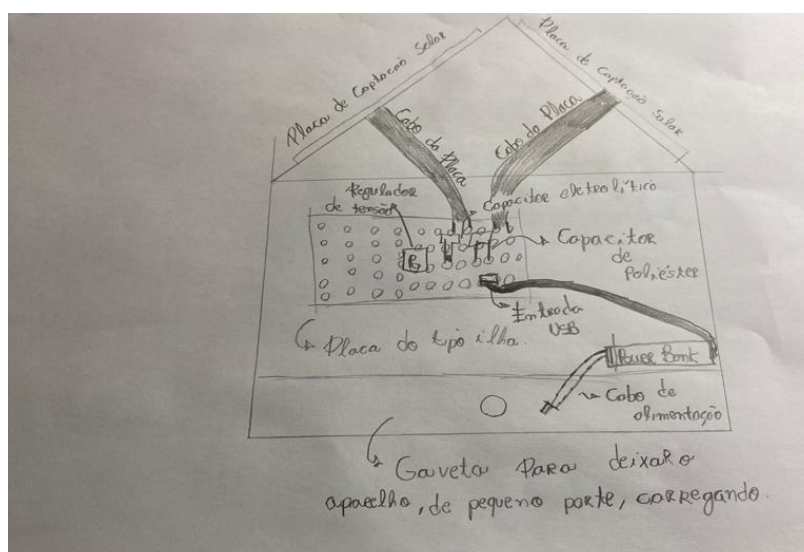 Placa de Captação Solar
Placa de Captação Solar
Cabo da Placa
Cabo da Placa
Regulador
de tensão
Capacitor eletrolítico
Capacitor
de
Poliéster
R
Entrada
USB
Placa do tipo ilha.
Power Bank
Cabo de
alimentação
Gaveta Para deixar o
aparelho, de pequeno porte, carregando.